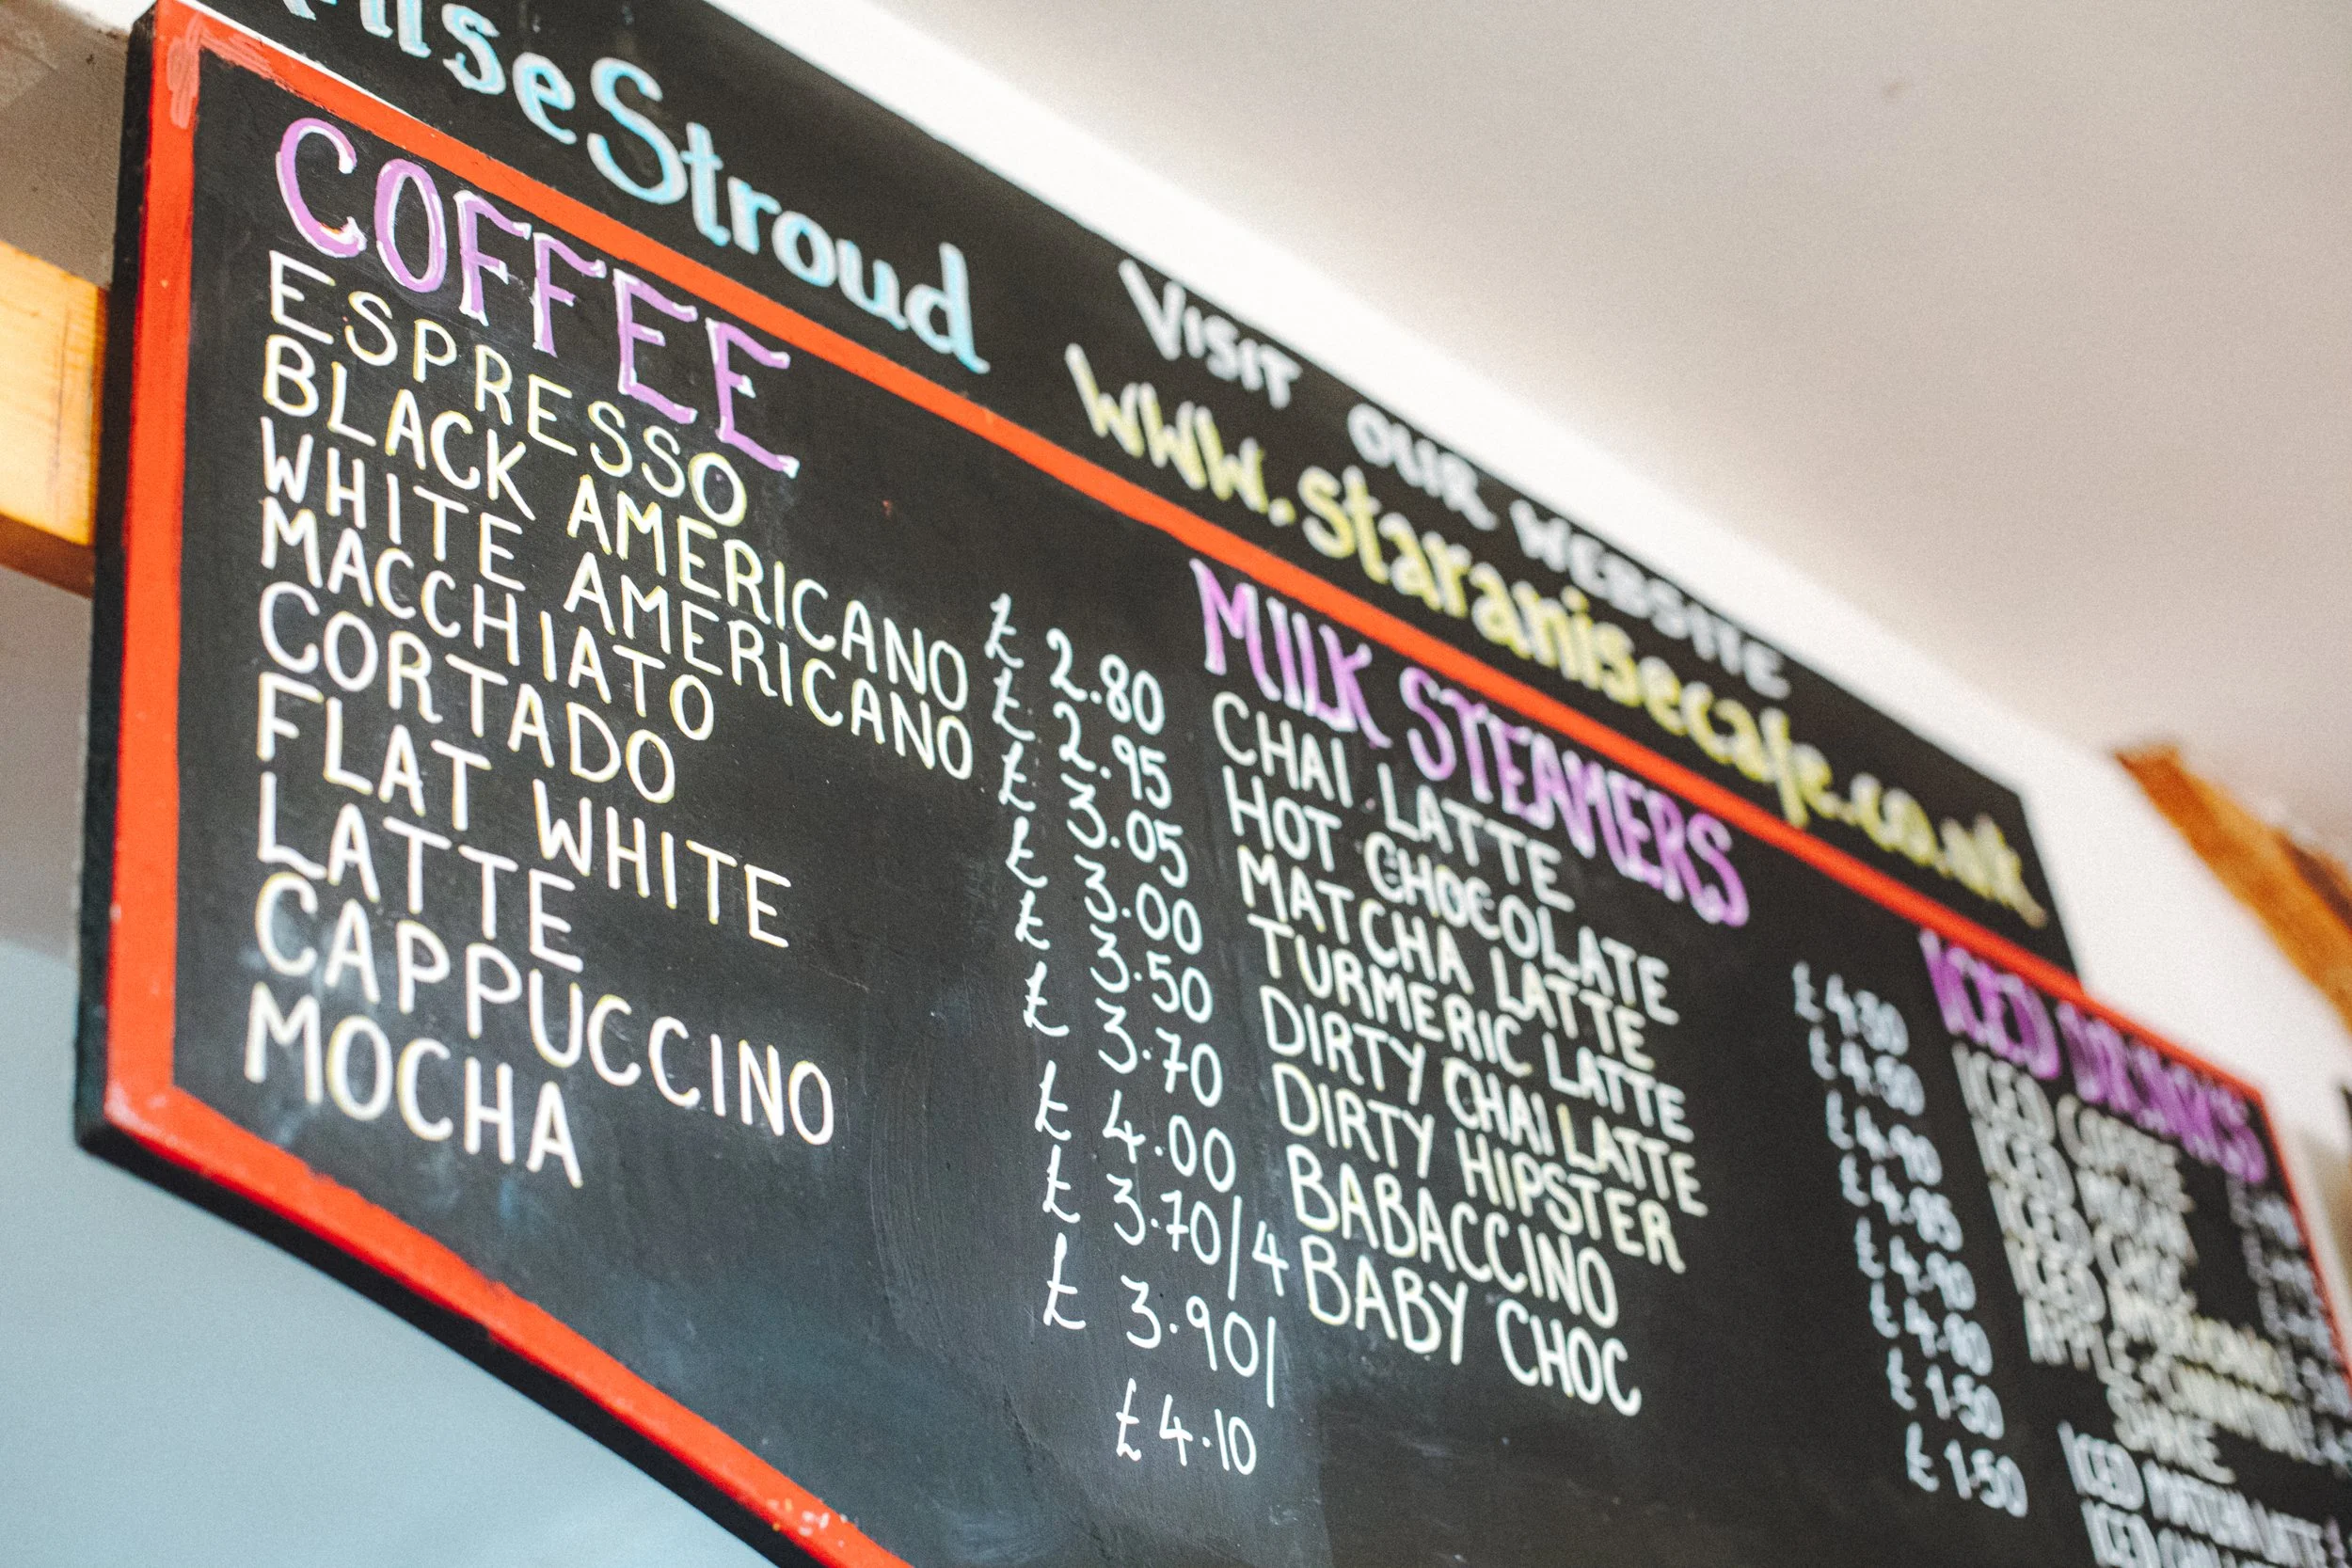 iseStroud
VISIT OUR WEBSITE
www.staranisecafe.co.uk
COFFEE
ESPRESSO £ 2.80
BLACK AMERICANO £ 2.95
WHITE AMERICANO £ 3.05
MACCHIATO £ 3.00
CORTADO £ 3.50
FLAT WHITE £ 3.70
LATTE £ 4.00
CAPPUCCINO £ 3.70/4
MOCHA £ 3.90/
£4.10
MILK STEAMERS
CHAI LATTE
HOT CHOCOLATE
MATCHA LATTE
TURMERIC LATTE
DIRTY CHAI LATTE
DIRTY HIPSTER
BABACCINO £1.50
BABY CHOC £1.50
ICED DRINKS
ICED COFFEE
ICED
ICED
ICED
APPLE
SHAKE
ICED MATCHA LATTE
ICED